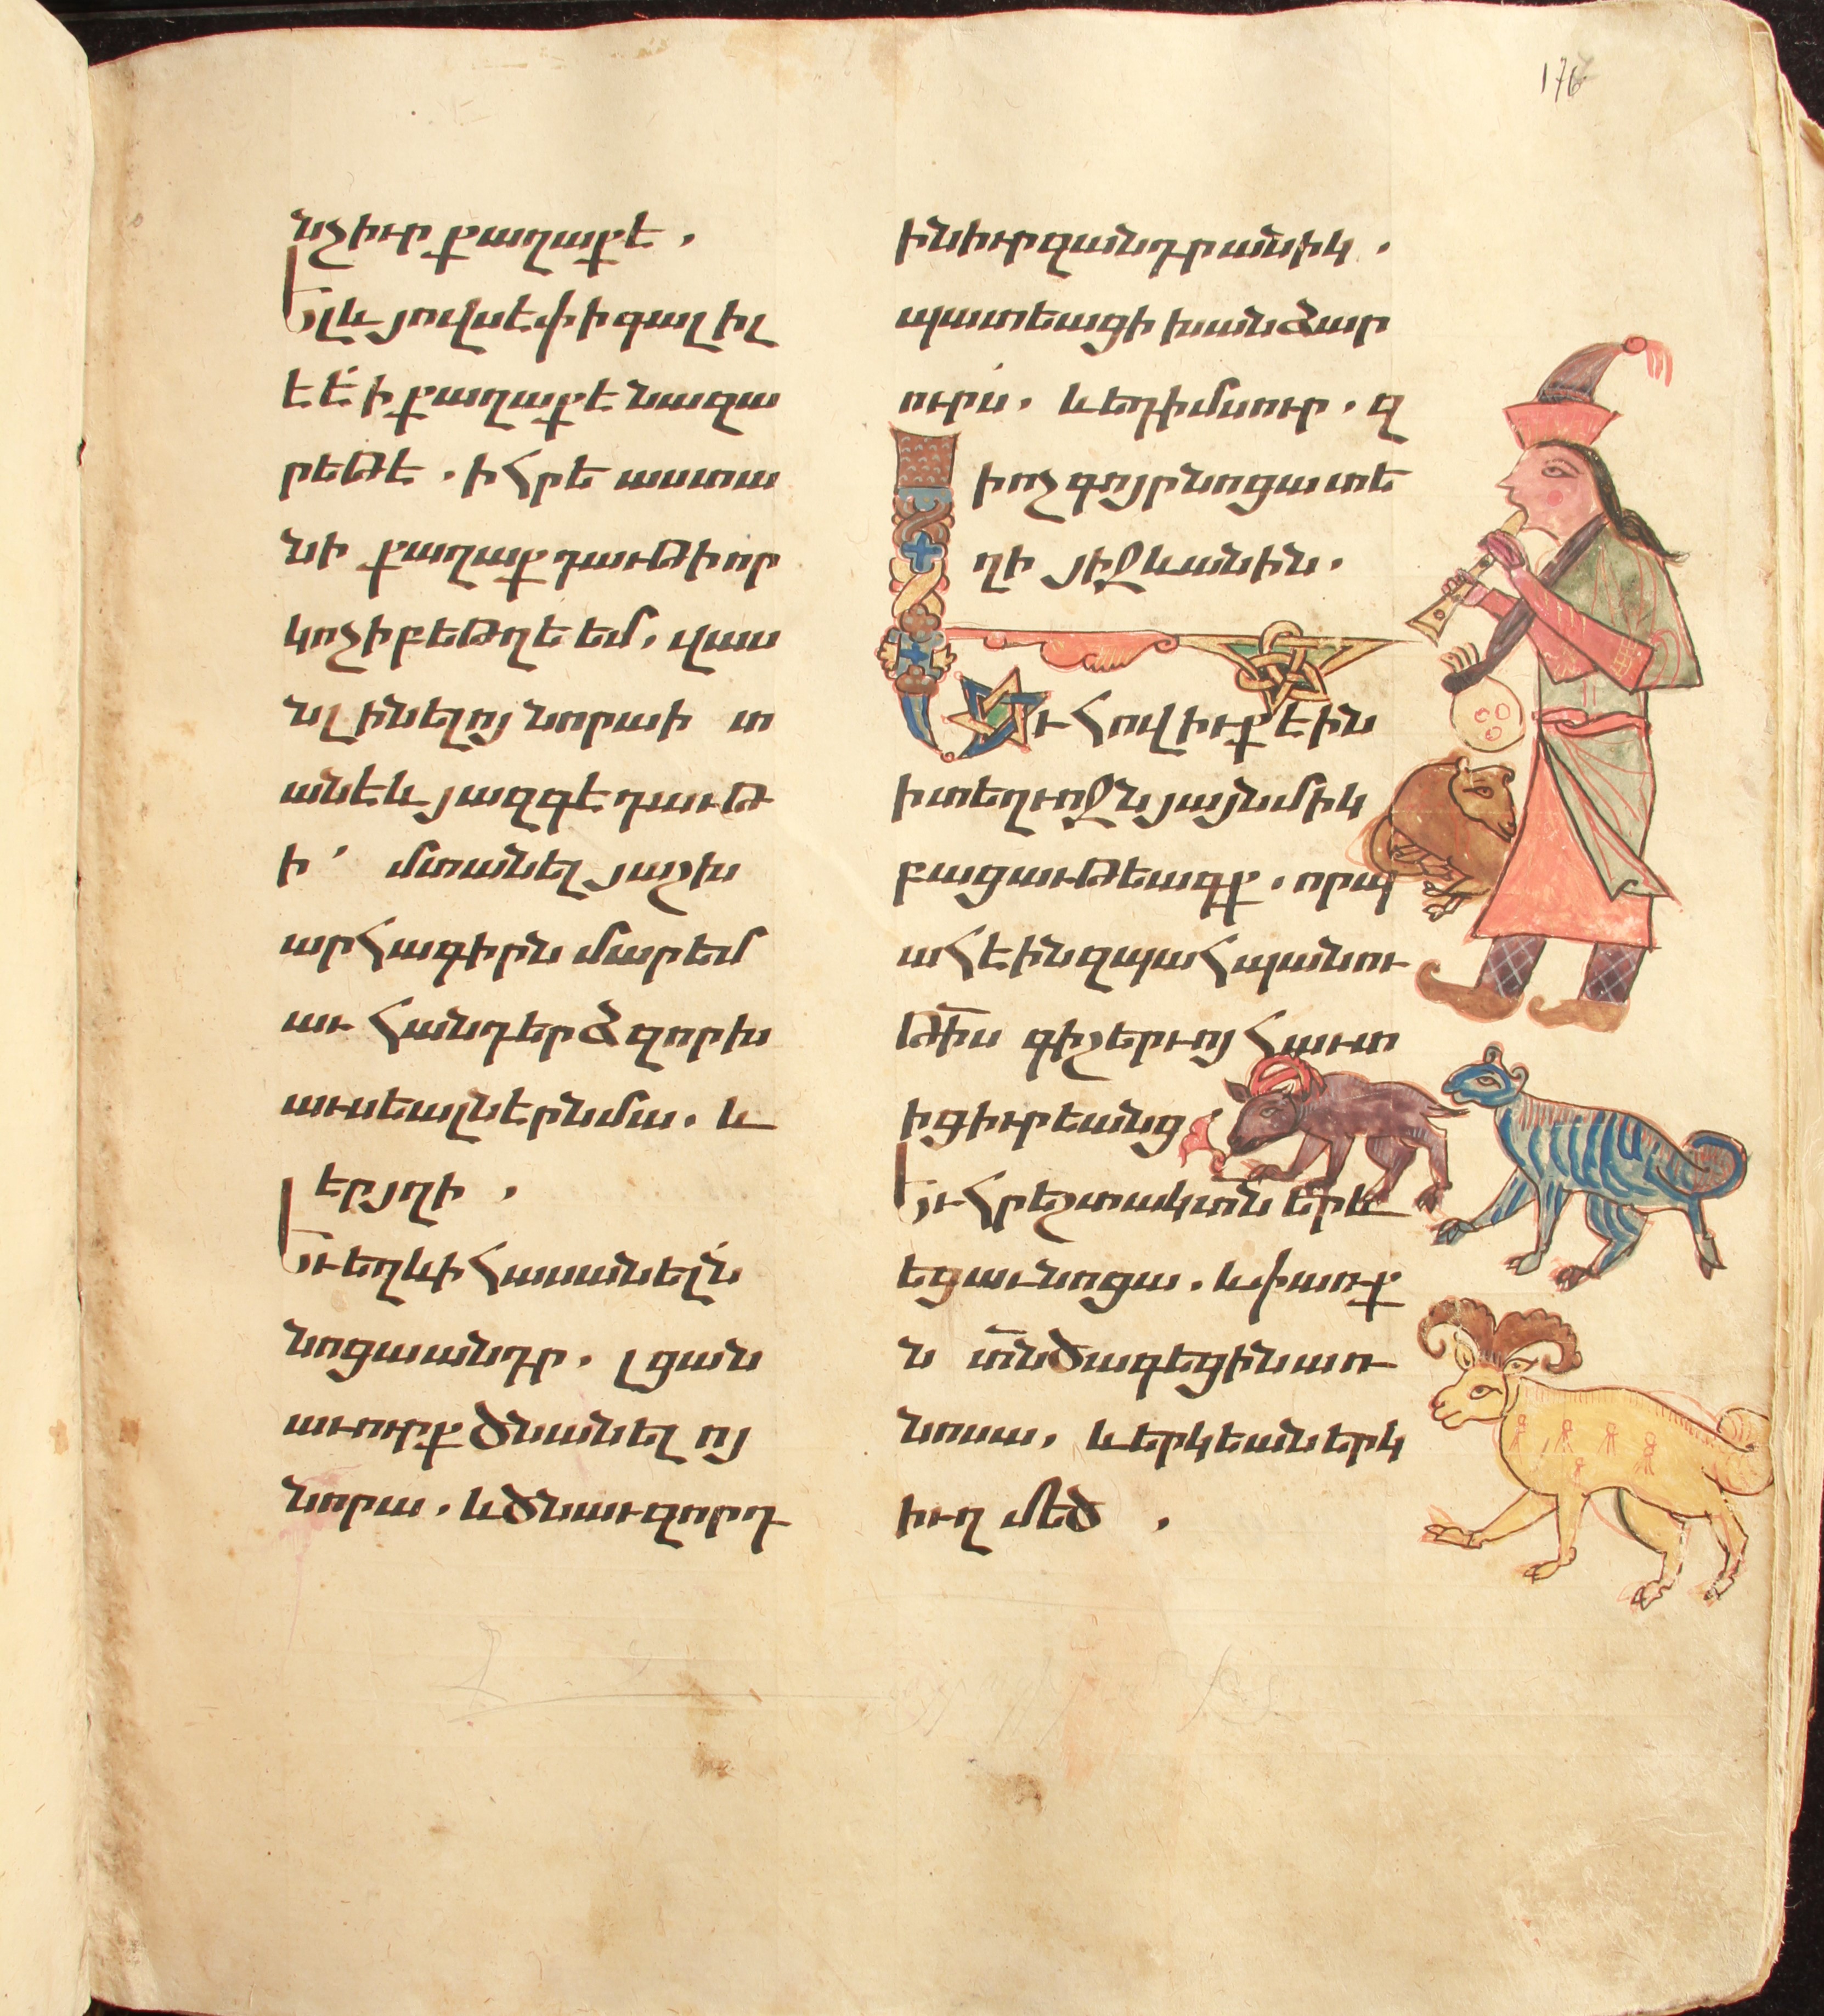 176
նչիւր քաղաքէ .
Ելև յովսէփ ի գալիլ
էէ՛ ի քաղաքէ նազա
րեթէ . ի հրէաստա
նի քաղաք դաւթի որ
կոչի բեթղեեմ . վաս
ն լինելոյ նորա ի տ
անէ և յազգէ դաւթ
ի՛ մտանել յաշխ
արհագիրն մարեմ
աւ հանդերձ զոր խ
աւսեալն էր նմա . և
էր յղի .
Եւ եղև ի հասանելն
նոցա անդր . լցան
աւուրք ծնանելոյ
նորա . և ծնաւ զորդ
ի ն իւր զանդրանիկ .
պատեաց ի խանձար
ուրս . և եդ ի մսուր . զ
ի ոչ գոյր նոցա տե
ղի յիջևանին .
Եւ հովիւք էին
ի տեղւոջն յայնմիկ
բացաւթեագք . որ պ
ահէին զպահպանու
թիս գիշերւոյ հաւտ
ից իւրեանց
Եւ հրեշտակ տն երև
եցաւ նոցա . և փառք
ն տն ծագեցին առ
նոսա . և երկեան երկ
իւղ մեծ .